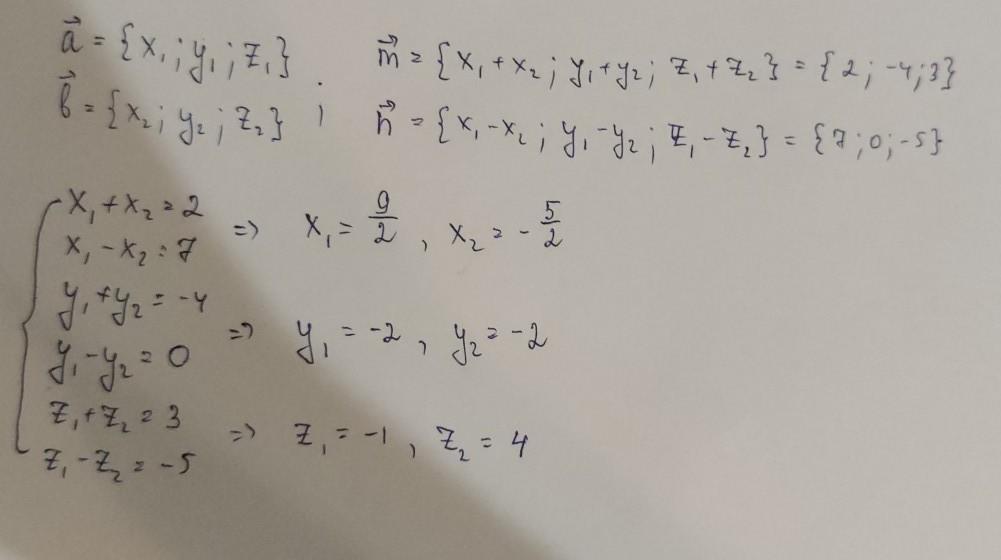 a⃗ = {x₁; y₁; z₁}
b⃗ = {x₂; y₂; z₂} ;
m⃗ = {x₁+x₂; y₁+y₂; z₁+z₂} = {2; -4; 3}
n⃗ = {x₁-x₂; y₁-y₂; z₁-z₂} = {7; 0; -5}
x₁+x₂=2
x₁-x₂=7
=> x₁=9/2, x₂=-5/2
y₁+y₂=-4
y₁-y₂=0
=> y₁=-2, y₂=-2
z₁+z₂=3
z₁-z₂=-5
=> z₁=-1, z₂=4